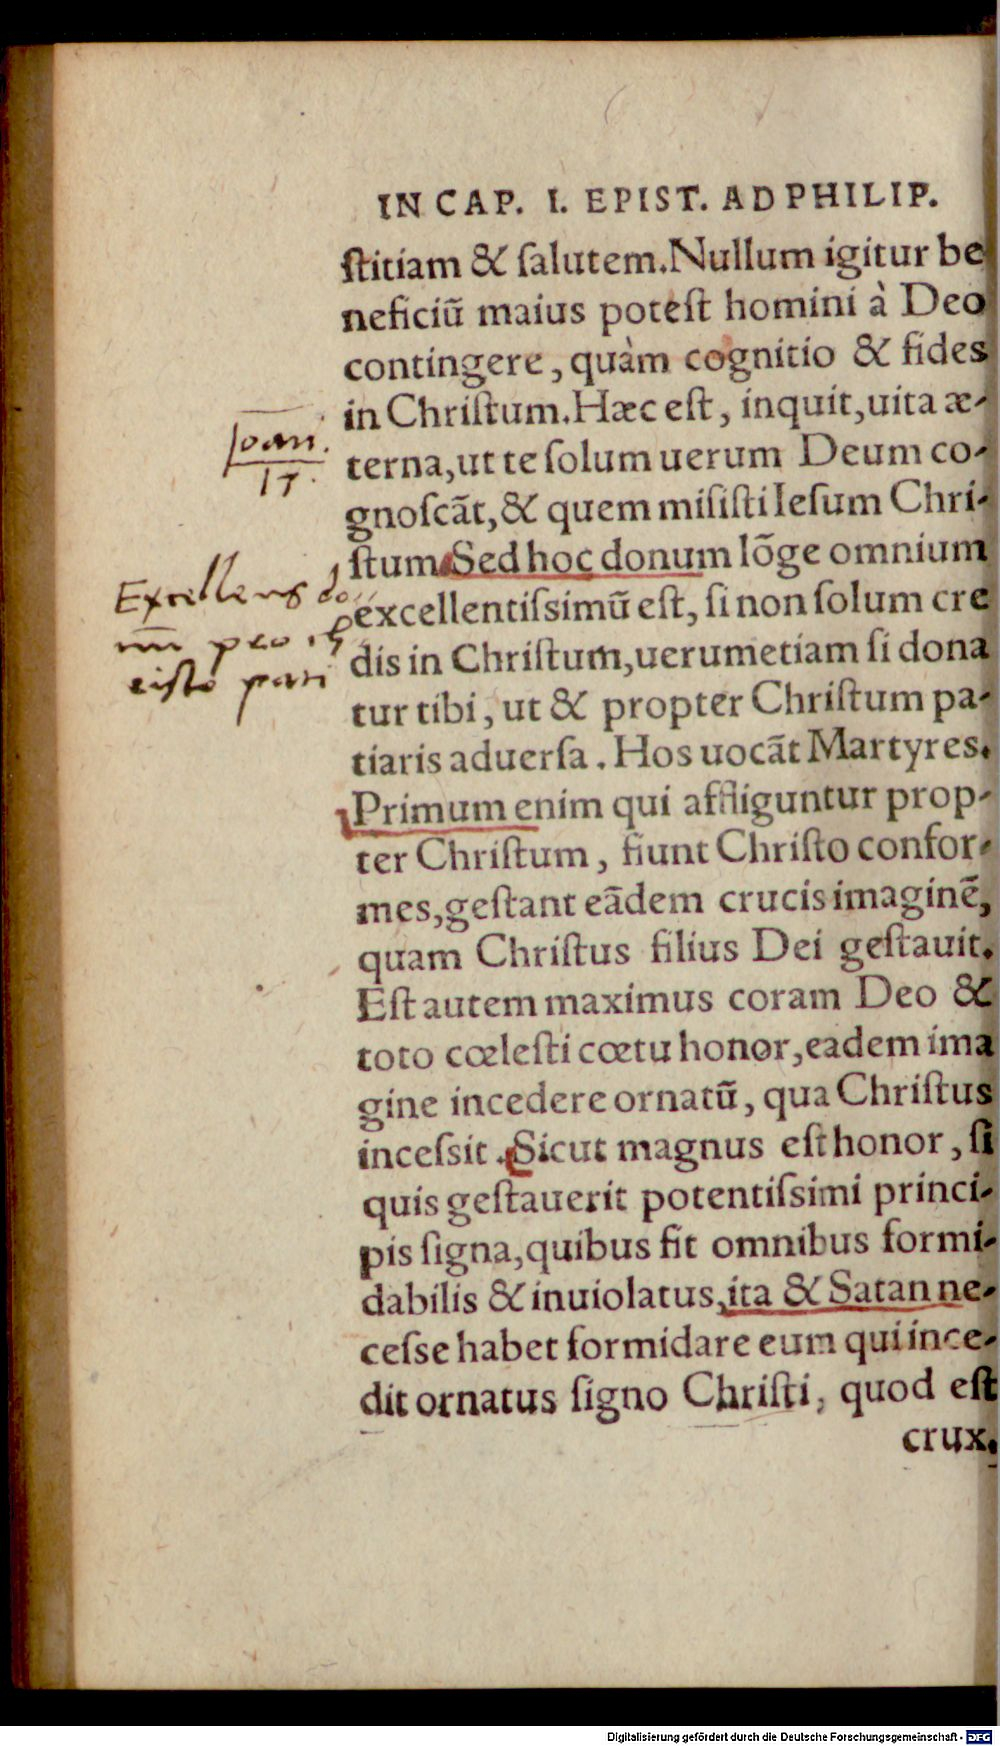 IN CAP. I. EPIST. AD PHILIP.
ſtitiam & ſalutem. Nullum igitur be
neficiũ maius poteſt homini à Deo
contingere, quàm cognitio & fides
in Chriſtum. Hæc eſt, inquit, uita æ-
terna, ut te ſolum uerum Deum co-
gnoſcãt, & quem miſiſti Ieſum Chri-
ſtum. Sed hoc donum lõge omnium
excellentiſsimũ eſt, ſi non ſolum cre
dis in Chriſtum, uerumetiam ſi dona
tur tibi, ut & propter Chriſtum pa-
tiaris aduerſa. Hos uocãt Martyres.
Primum enim qui affliguntur prop-
ter Chriſtum, fiunt Chriſto confor-
mes, geſtant eãdem crucis imaginẽ,
quam Chriſtus filius Dei geſtauit.
Eſt autem maximus coram Deo &
toto cœleſti cœtu honor, eadem ima
gine incedere ornatũ, qua Chriſtus
inceſsit. Sicut magnus eſt honor, ſi
quis geſtauerit potentiſsimi princi-
pis ſigna, quibus fit omnibus formi-
dabilis & inuiolatus, ita & Satan ne-
ceſse habet formidare eum qui ince-
dit ornatus ſigno Chriſti, quod eſt
crux.
Joan.
17.
Excellens do
pati
Digitalisierung gefördert durch die Deutsche Forschungsgemeinschaft - DFG